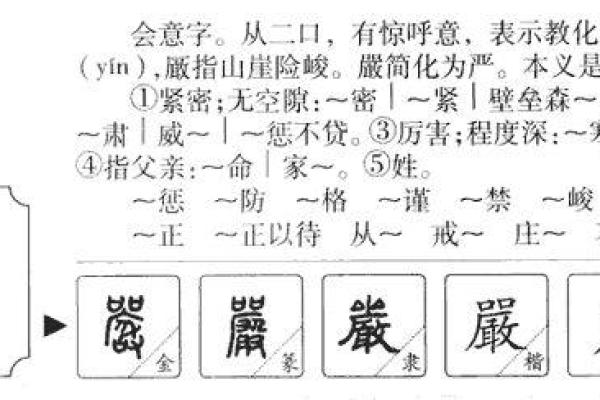 会意字。从二口，有惊呼意，表示教化
（yín），厰指山崖险峻。嚴简化为严。本义是
①紧密；无空隙：～密｜～紧｜壁垒森～
～肃｜威～｜～惩不贷。③厉害；程度深：～寒
④指父亲：～命｜家～。⑤姓。
～惩 ～防 ～格 ～谨 ～禁 ～峻
～正 ～正以待 从～ 戒～ 庄～
嚴 金 嚴 篆 嚴 隶 嚴 楷